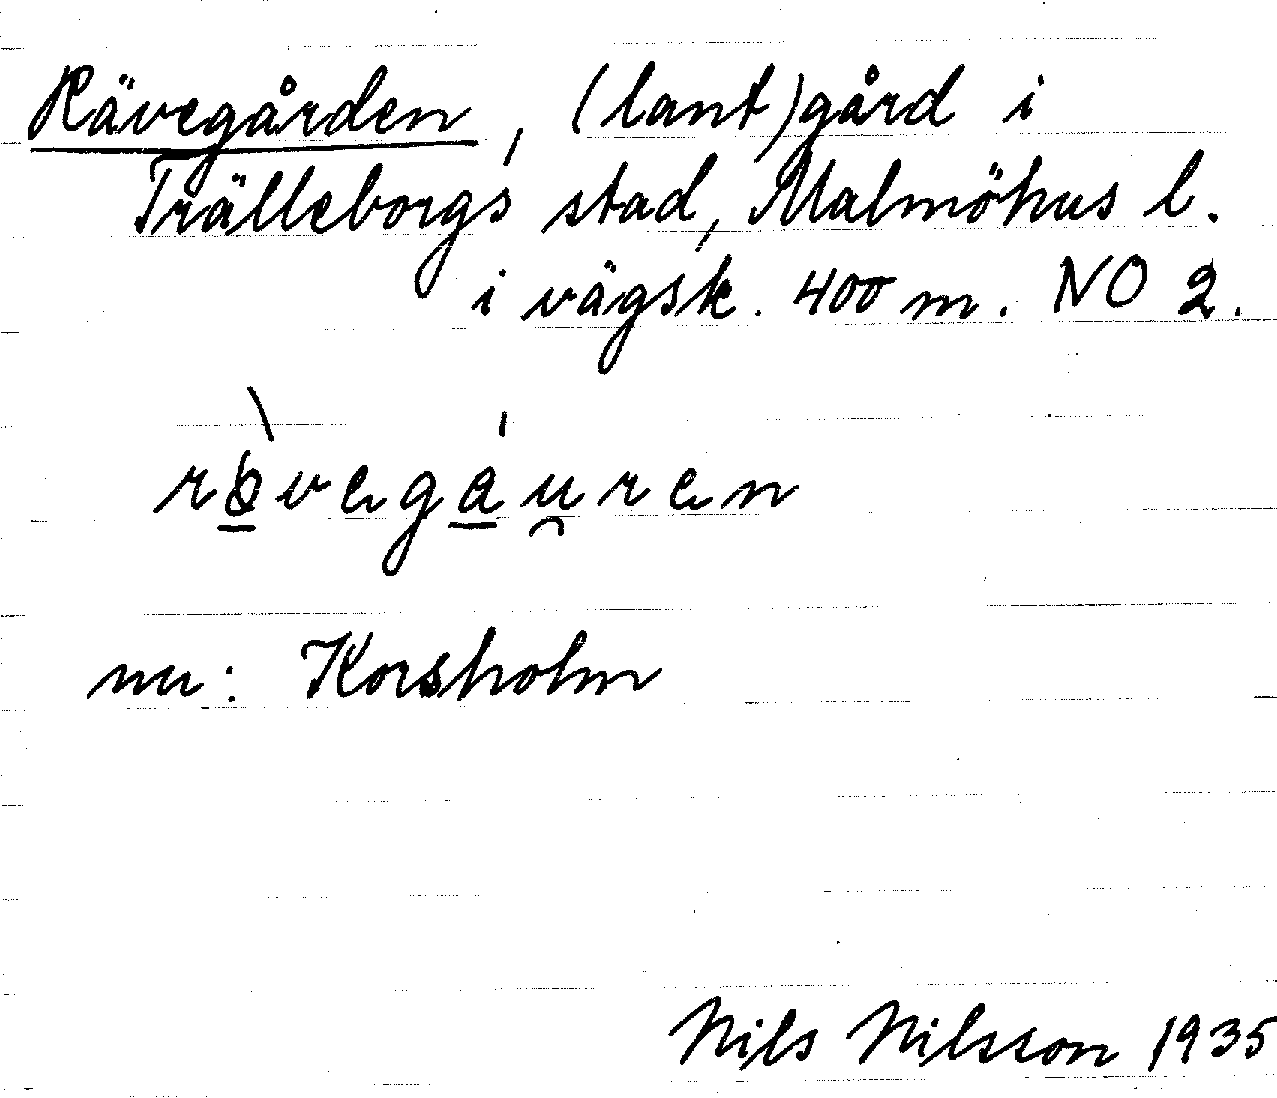 Rävegården, (lant)gård i
Trälleborgs stad, Malmöhus l.
i vägsk. 400 m. NO 2.
røvegáuren
nu: Korsholm
Nils Nilsson 1935